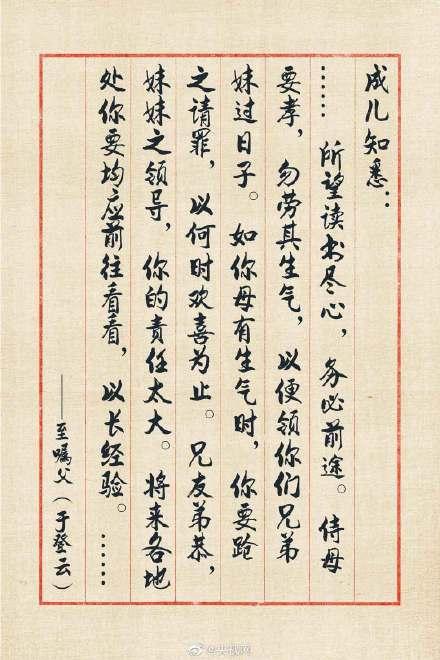 成儿知悉：
……
所望读书尽心，务必前途。侍母
要孝，勿劳其生气，以便领你们兄弟
妹过日子。如你母有生气时，你要跪
之请罪，以何时欢喜为止。兄友弟恭，
妹妹之领导，你的责任太大。将来各地
处你要均应前往看看，以长经验。……
——至嘱父（于登云）
@央视网